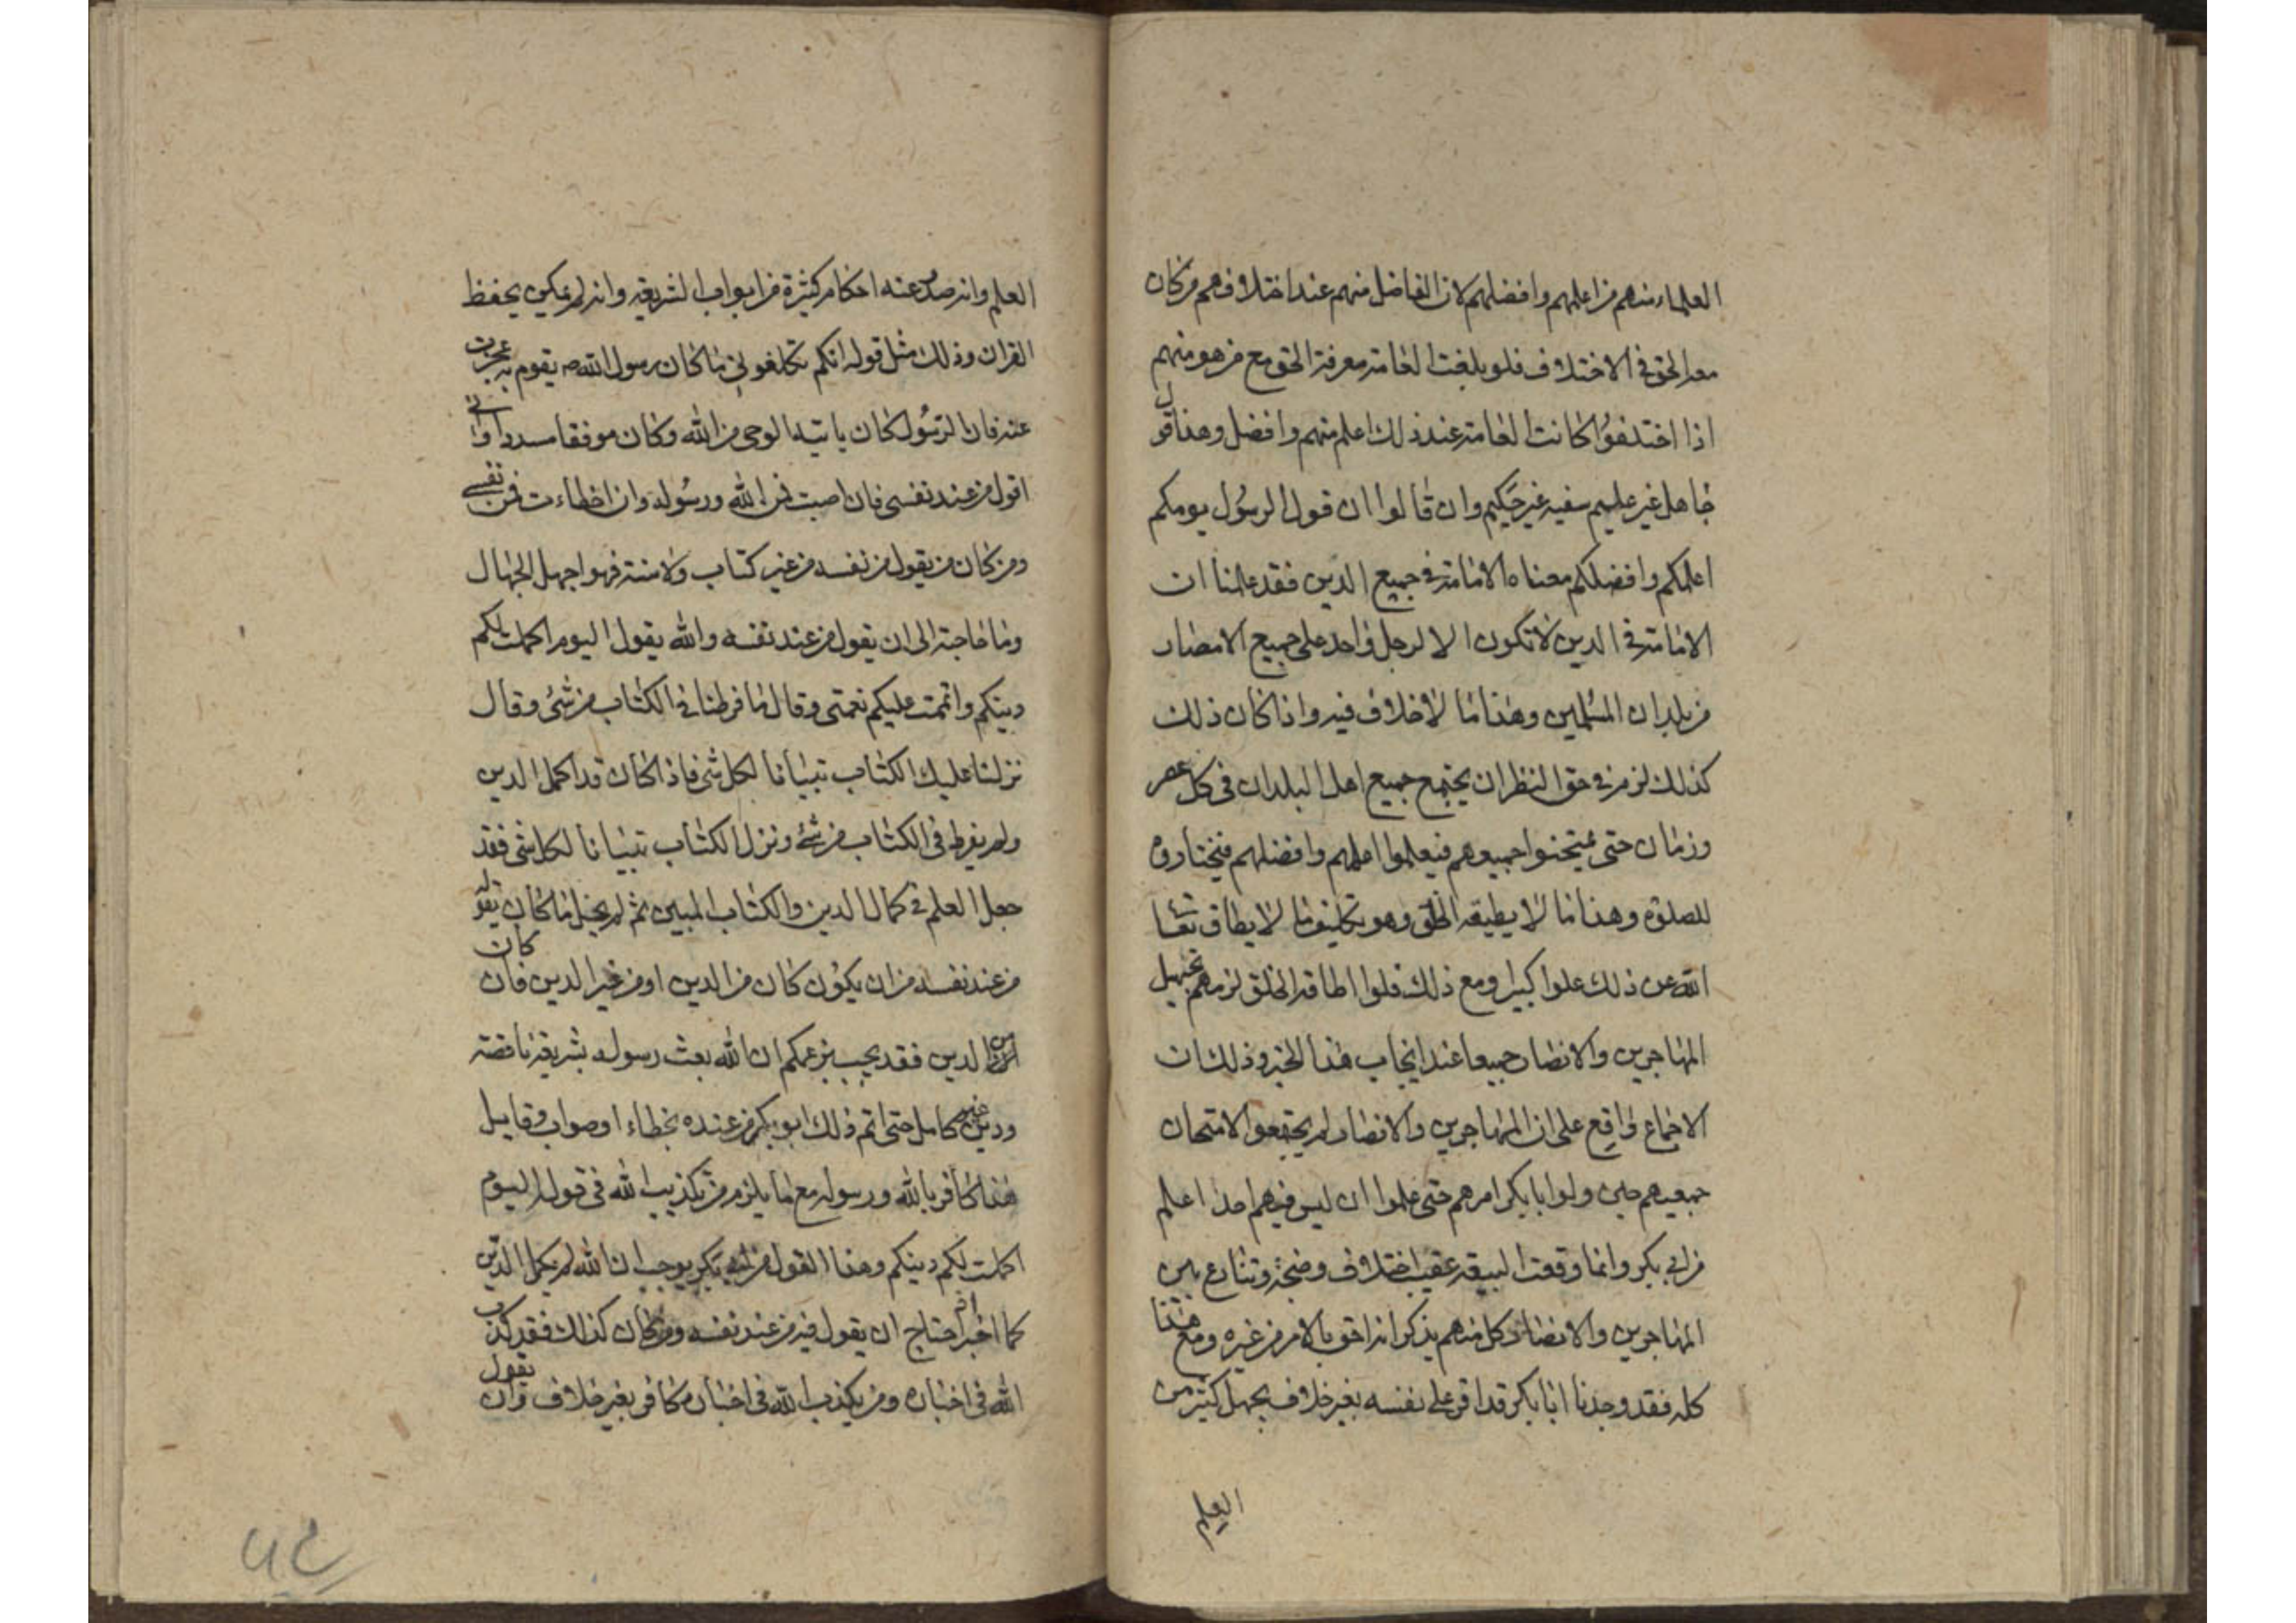 العلماء منهم من اعلمهم وافضلهم لان الفاضل منهم عند اختلافهم من كان
معه الحق في الاختلاف فلو بلغت العامة معرفة الحق مع من هو منهم
اذا اختلفوا كانت العامة عند ذلك اعلم منهم وافضل وهذا قول
جاهل غير عليم سفيه غير حكيم وان قالوا ان قول الرسول يومكم
اعلمكم وافضلكم معناه الامامة في جميع الدين فقد علمنا ان
الامامة في الدين لا تكون الا لرجل واحد على جميع الامصار
من بلدان المسلمين وهذا ما لا خلاف فيه واذا كان ذلك
كذلك لزم في حق النظر ان يجتمع جميع اهل البلدان في كل عصر
وزمان حتى يمتحنوا جميعهم فيعلموا اعلمهم وافضلهم فيختاروه
للصلوة وهذا ما لا يطيقه الخلق وهو تكليف ما لا يطاق تعالى
الله عن ذلك علوا كبيرا ومع ذلك فلو اطاقه الخلق لزمهم تجهيل
المهاجرين والانصار جميعا عند ايجاب هذا الخبر وذلك ان
الاجماع واقع على ان المهاجرين والانصار لم يجتمعوا لامتحان
جميعهم حين ولوا ابا بكر امرهم حتى علموا ان ليس فيهم احد اعلم
من ابي بكر وانما وقعت البيعة عقيب اختلاف وضجة وتنازع بين
المهاجرين والانصار وكل منهم يذكر انه احق بالامر من غيره ومع هذا
كله فقد وجدنا ابا بكر قد اقر على نفسه بغير خلاف بجهل كثير من
العلم
العلم وانه صدر عنه احكام كثيرة من ابواب الشريعة وانه لم يكن يحفظ
القران وذلك مثل قوله انكم تكلفوني ما كان رسول الله ص يقوم به عجزت
عنه فان الرسول كان ياتيه الوحي من الله وكان موفقا مسددا واني
اقول من عند نفسي فان اصبت فمن الله ورسوله وان اخطاءت فمن نفسي
ومن كان من يقول من نفسه من غير كتاب ولا سنة فهو اجهل الجهال
وما حاجته الى ان يقول من عند نفسه والله يقول اليوم اكملت لكم
دينكم واتممت عليكم نعمتي وقال ما فرطنا في الكتاب من شئ وقال
نزلنا عليك الكتاب تبيانا لكل شئ فاذا كان قد اكمل الدين
ولم يفرط في الكتاب من شئ ونزل الكتاب تبيانا لكل شئ فقد
جعل العلم في كمال الدين والكتاب المبين ثم لم يخل ما كان يقوله
من عند نفسه من ان يكون كان من الدين او من غير الدين فان كان
من الدين فقد يجب بزعمكم ان الله بعث رسوله بشريعة ناقصة
ودين غير كامل حتى اتم ذلك ابو بكر من عنده بخطاء او صواب وقايل
هذا كافر بالله ورسوله مع ما يلزم من تكذيب الله في قوله اليوم
اكملت لكم دينكم وهذا القول من ابي بكر يوجب ان الله لم يكمل الدين
كما اخبر اذ احتاج ان يقول فيه من عند نفسه ومن كان كذلك فقد كذب
الله في اخباره ومن يكذب الله في اخباره كافر بغير خلاف وان يقول